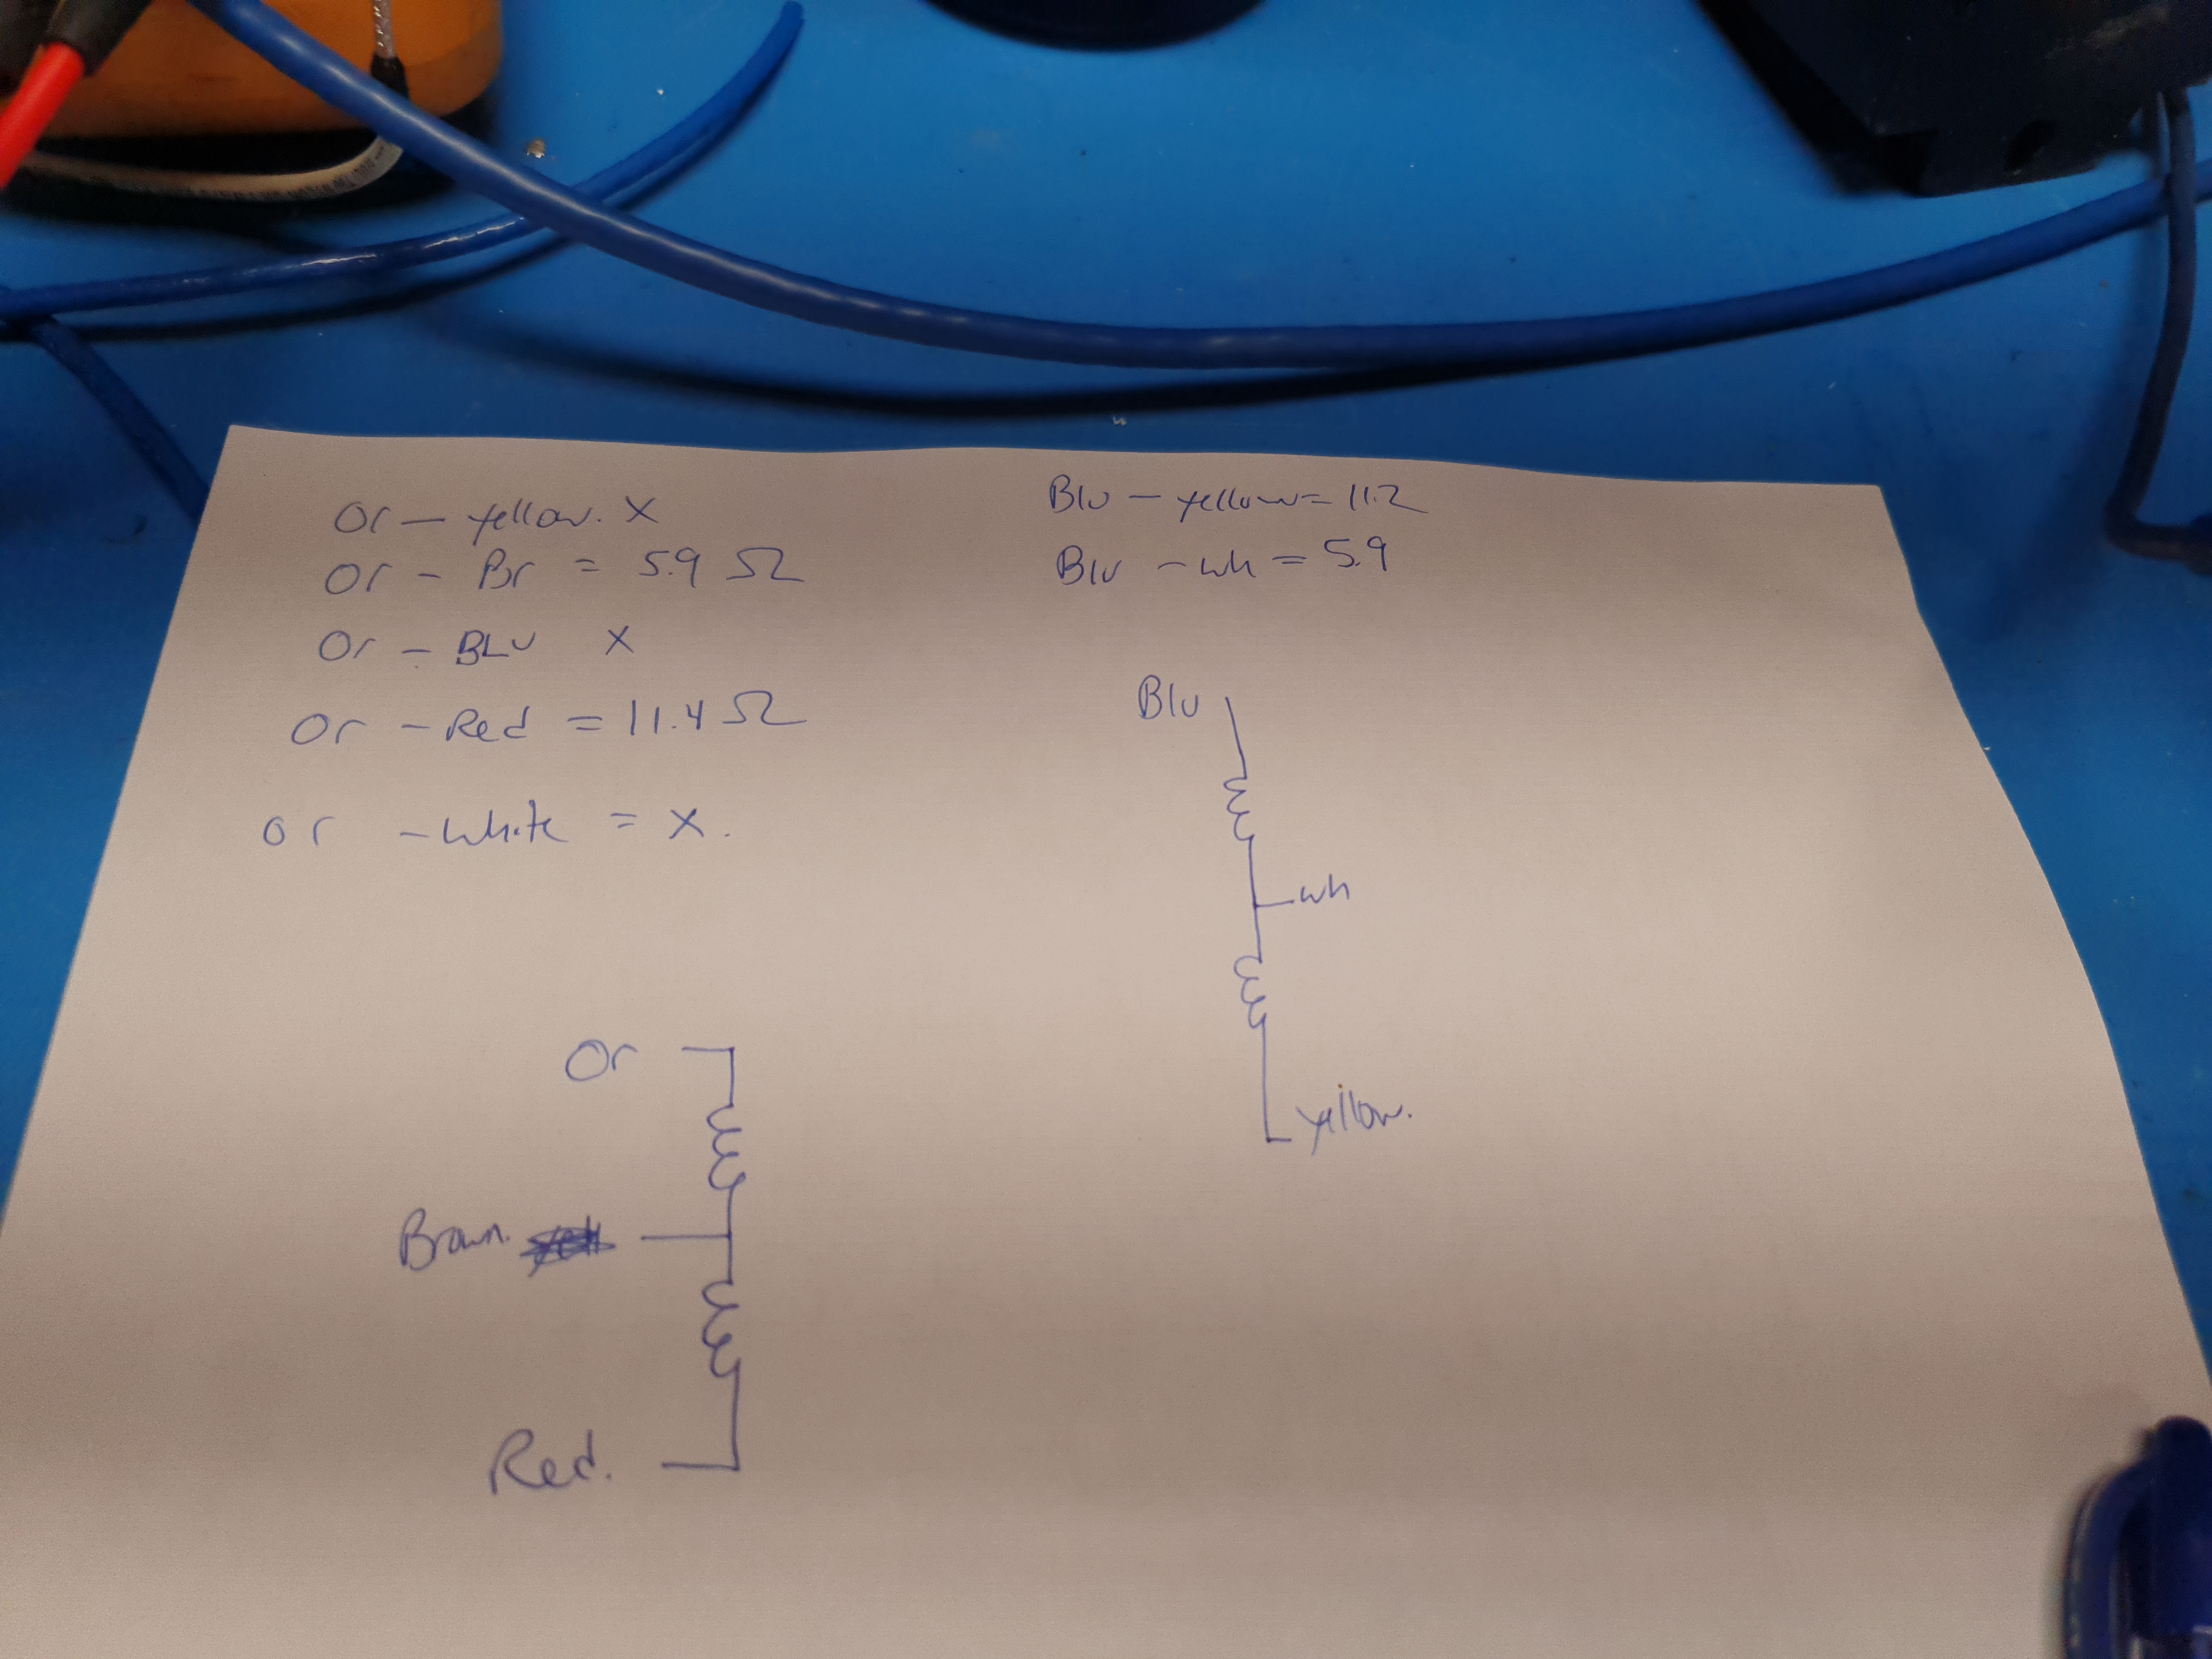 Or - yellow. X
Or - Br = 5.9 Ω
Or - BLU X
Or - Red = 11.4 Ω
or - white = X.
Blu - yellow = 11.2
Blu - wh = 5.9
Blu
wh
yellow.
Or
Brown.
Red.